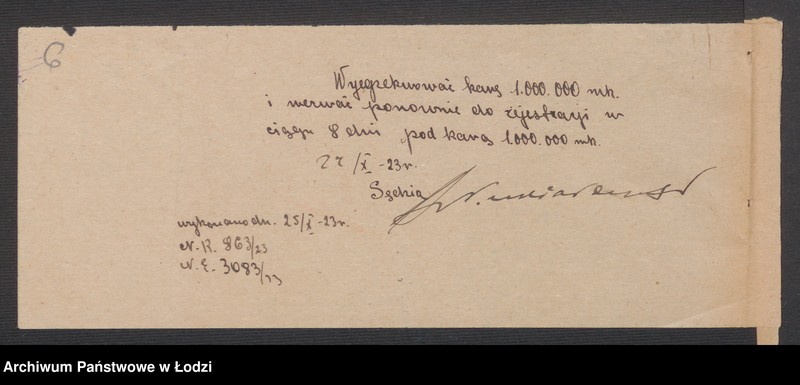 6
Wyegzekwować karę 1.000.000 mk.
i wezwać ponownie do rejestracji w
ciągu 8 dni pod karą 1.000.000 mk.
22/X -23 r.
Sędzia
wykonano dn. 25/X -23 r.
N. R. 863/23
N. E. 3083/23
Archiwum Państwowe w Łodzi